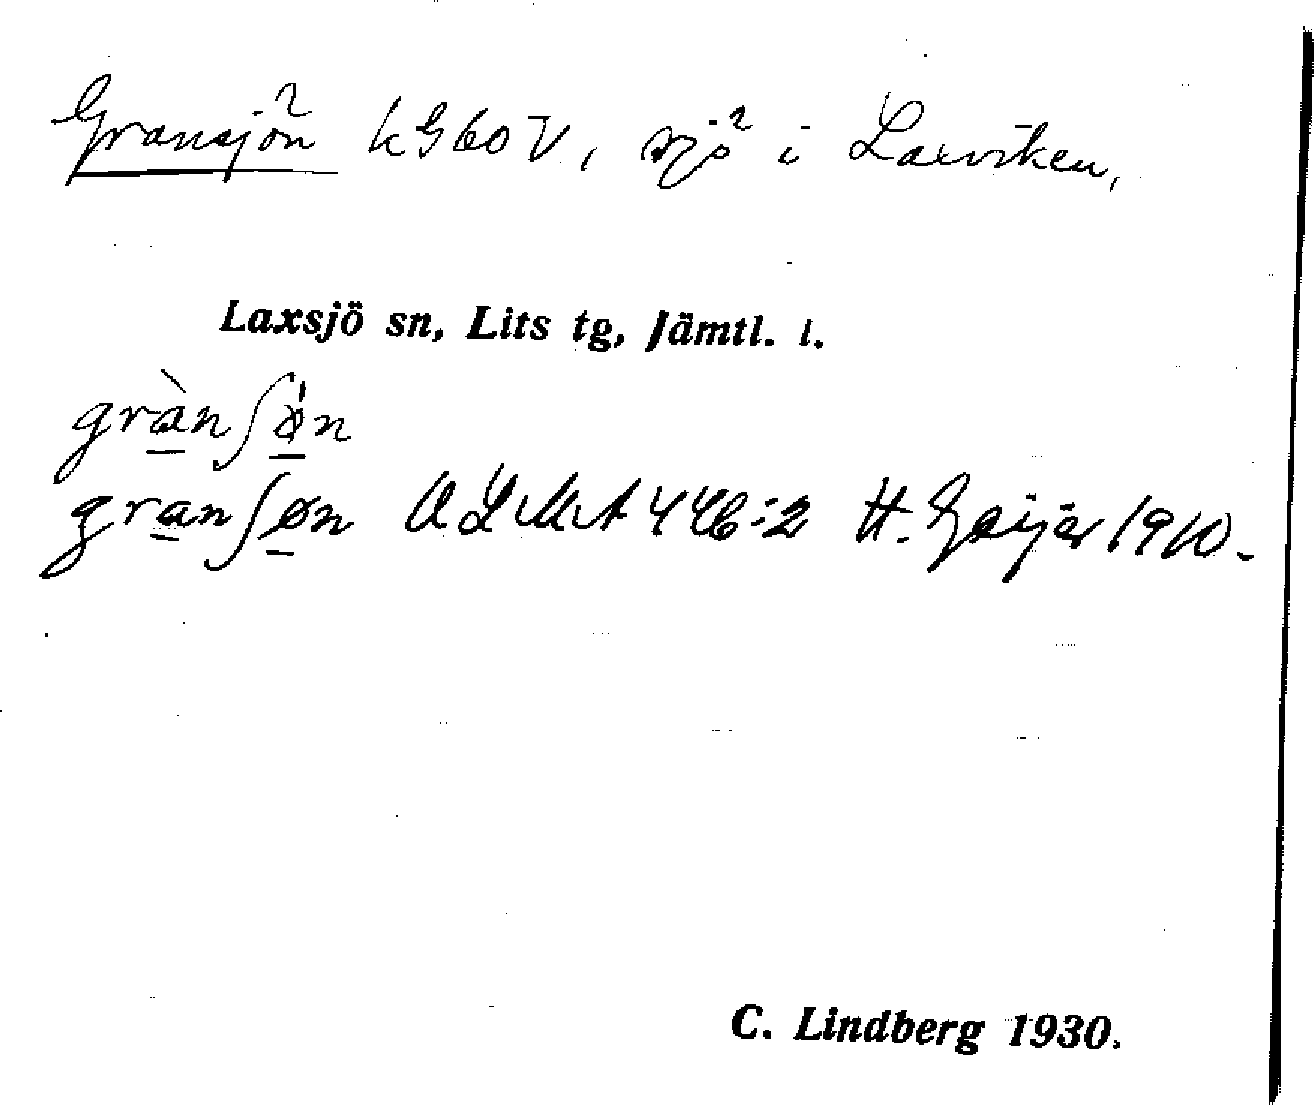 Gransjön kG60V, sjö i Laxviken,
Laxsjö sn, Lits tg, Jämtl. l.
grànʃø̀n
granʃøn ULMA 446:2 H. Geijer 1910.
C. Lindberg 1930.